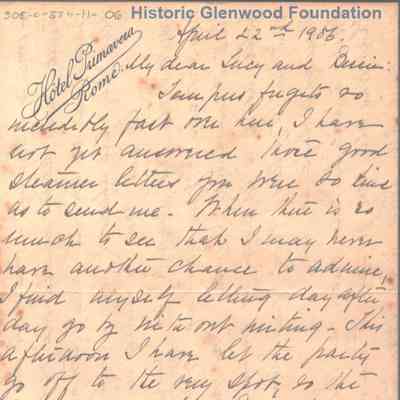 Historic Glenwood Foundation
April 22nd 1906.
Hotel Primavera
Rome.
My dear Lucy and
Tempus fugits so
incredibly fast over here, I have
not yet answered those good
steamer letters you were so kind
as to send me. When there is so
much to see that I may never
have another chance to admire,
I find myself letting day after
day go by without writing - This
afternoon I have let the party
go off to the very spot, so the